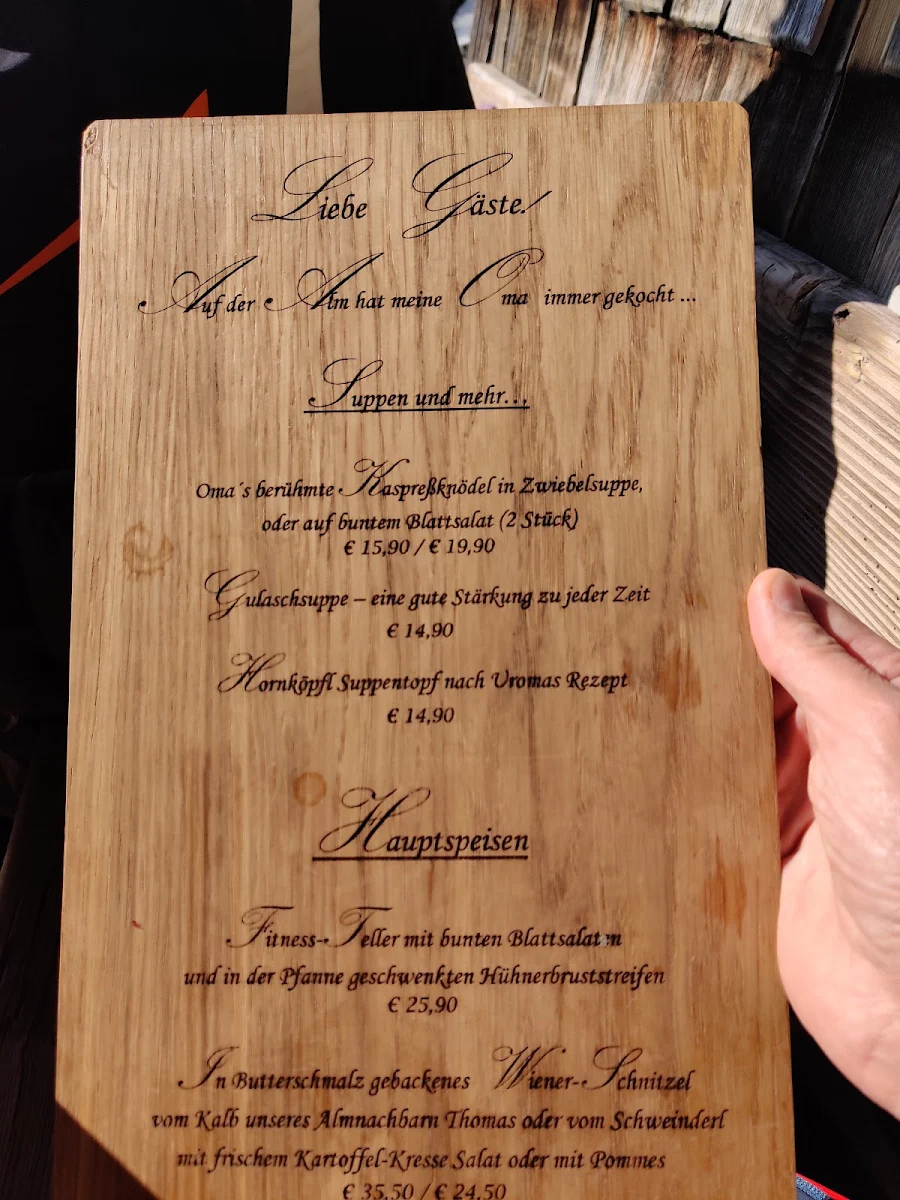 Liebe Gäste!
Auf der Alm hat meine Oma immer gekocht ...
Suppen und mehr...
Oma´s berühmte Kaspreßknödel in Zwiebelsuppe,
oder auf buntem Blattsalat (2 Stück)
€ 15,90 / € 19,90
Gulaschsuppe – eine gute Stärkung zu jeder Zeit
€ 14,90
Hornköpfl Suppentopf nach Uromas Rezept
€ 14,90
Hauptspeisen
Fitness-Teller mit bunten Blattsalaten
und in der Pfanne geschwenkten Hühnerbruststreifen
€ 25,90
In Butterschmalz gebackenes Wiener-Schnitzel
vom Kalb unseres Almnachbarn Thomas oder vom Schweinderl
mit frischem Kartoffel-Kresse Salat oder mit Pommes
€ 35,50 / € 24,50